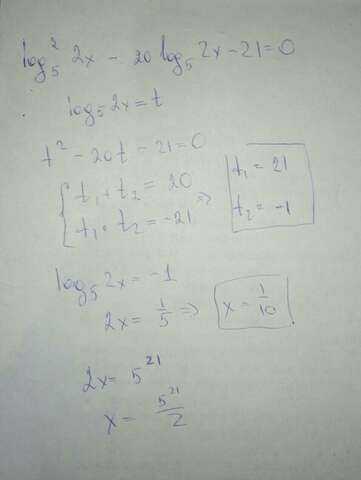 log₅² 2x - 20 log₅ 2x - 21 = 0
log₅ 2x = t
t² - 20t - 21 = 0
{ t₁ + t₂ = 20
t₁ · t₂ = -21 => t₁ = 21
t₂ = -1
log₅ 2x = -1
2x = 1/5 => x = 1/10
2x = 5²¹
x = 5²¹/2